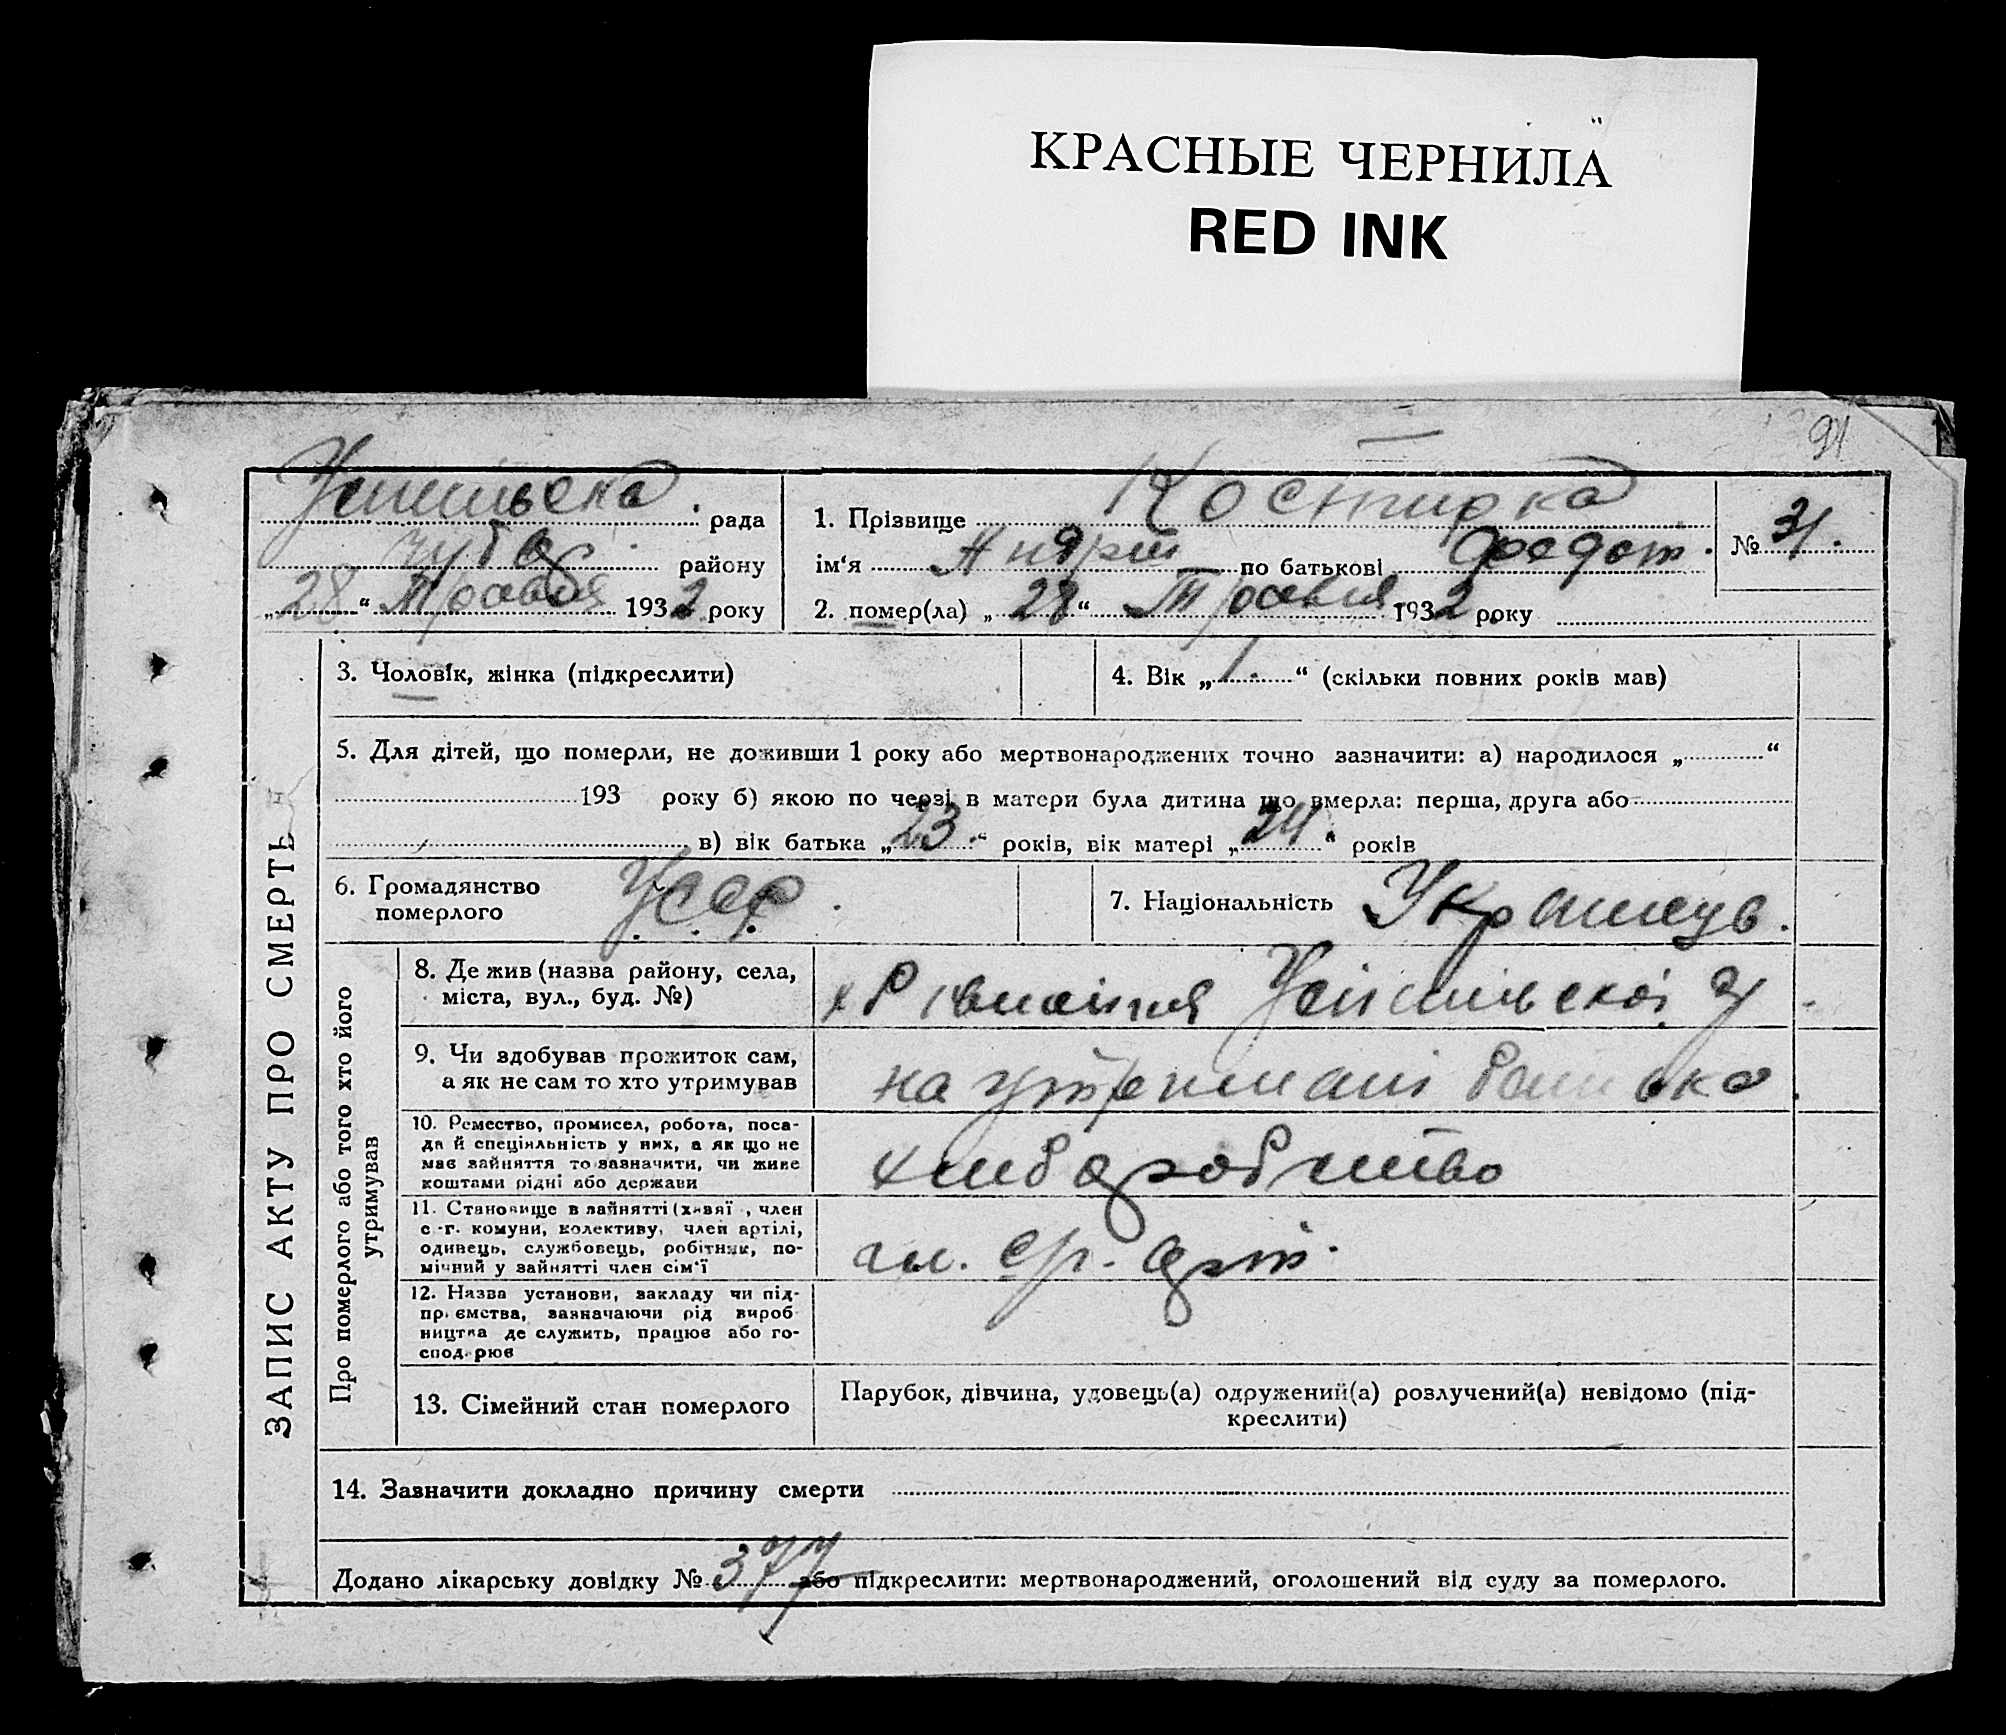 КРАСНЫЕ ЧЕРНИЛА
RED INK
91
рада
району
„28“ Травня 1932 року
1. Прізвище Костирка
ім‘я Андрій по батькові Федот.
№ 31.
2. помер(ла) „28“ Травня 1932 року
ЗАПИС АКТУ ПРО СМЕРТЬ
3. Чоловік, жінка (підкреслити)
4. Вік „1.“ (скільки повних років мав)
5. Для дітей, що померли, не доживши 1 року або мертвонароджених точно зазначити: а) народилося „ “
193 року б) якою по черзі в матери була дитина що вмерла: перша, друга або
в) вік батька „23.“ років, вік матері „24.“ років
6. Громадянство
померлого
УССР.
7. Національність Українець.
Про померлого або того хто його
утримував
8. Де жив (назва району, села,
міста, вул., буд. №)
9. Чи здобував прожиток сам,
а як не сам то хто утримував
на утримані батька.
10. Ремество, промисел, робота, поса-
да й спеціяльність у них, а як що не
має зайняття то зазначити, чи живе
коштами рідні або держави
хліборобство
11. Становище в зайнятті (хазяї , член
с.-г. комуни, колективу, член артілі,
одинець, службовець, робітник, по-
мічний у зайнятті член сім‘ї
чл. с/г. арт.
12. Назва установи, закладу чи під-
приємства, зазначаючи рід вироб
ництва де служить, працює або го-
сподарює
13. Сімейний стан померлого
Парубок, дівчина, удовець(а) одружений(а) розлучений(а) невідомо (під-
креслити)
14. Зазначити докладно причину смерти
Додано лікарську довідку № 377 або підкреслити: мертвонароджений, оголошений від суду за померлого.